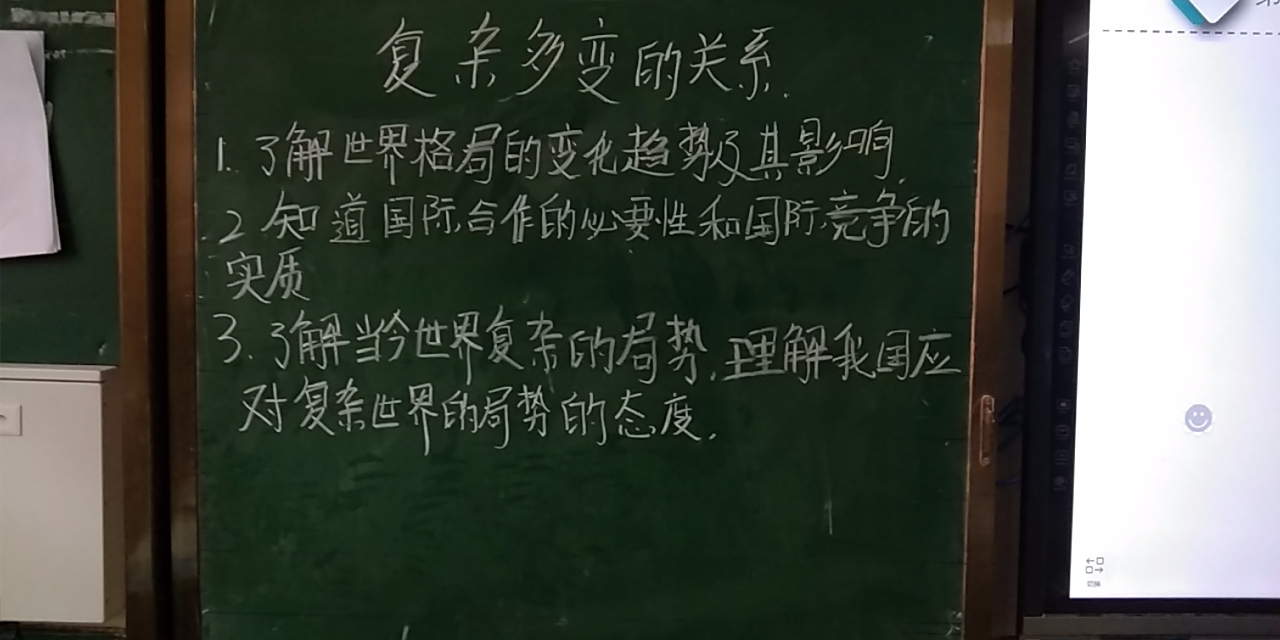 复杂多变的关系.
1. 了解世界格局的变化趋势及其影响.
2 知道国际合作的必要性和国际竞争的
实质
3. 了解当今世界复杂的局势.理解我国应
对复杂世界的局势的态度.